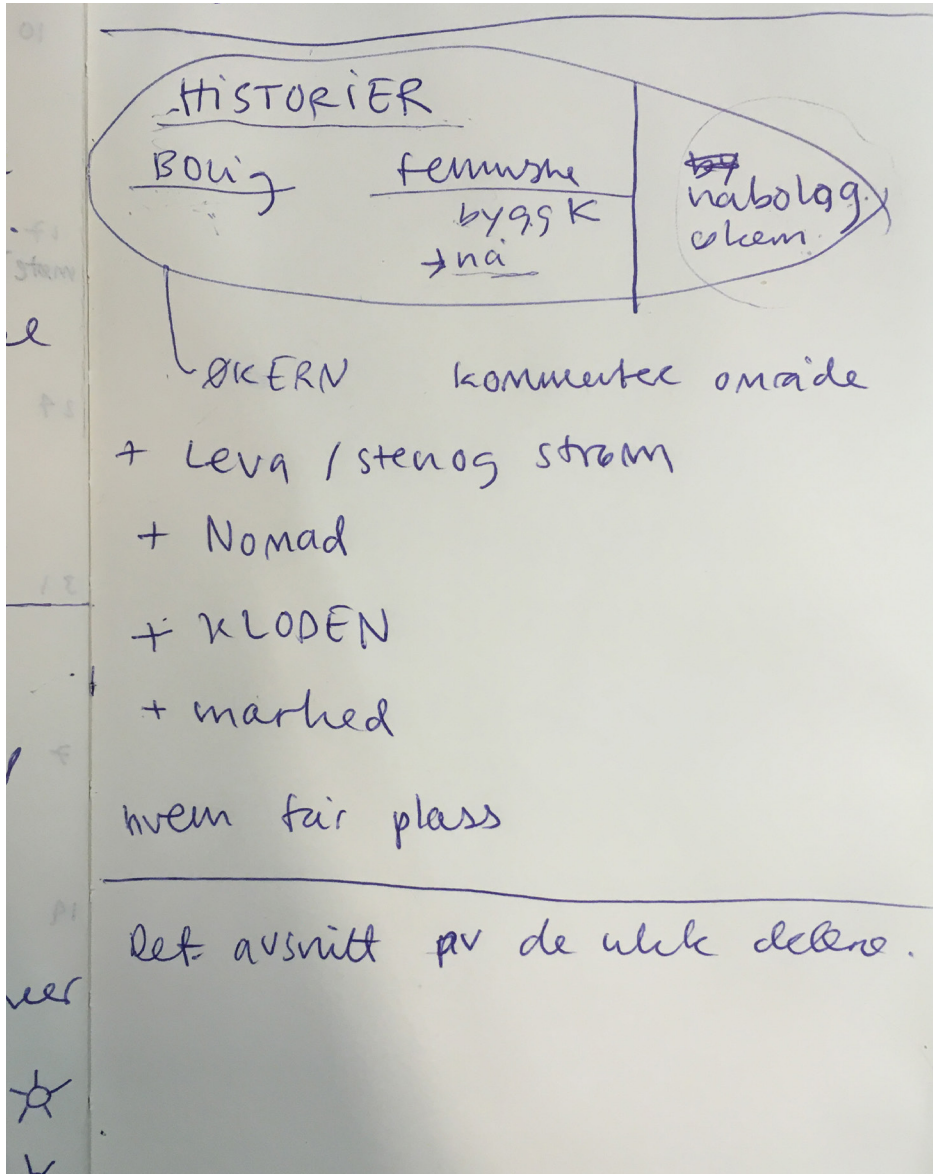 HISTORIER
BOLIG feministe
bygg K
→ nå
nabolag
økern
ØKERN kommenter område
+ Leva / sten og strøm
+ Nomad
+ KLODEN
+ marked
hvem får plass
avsnitt av de ulik delene.